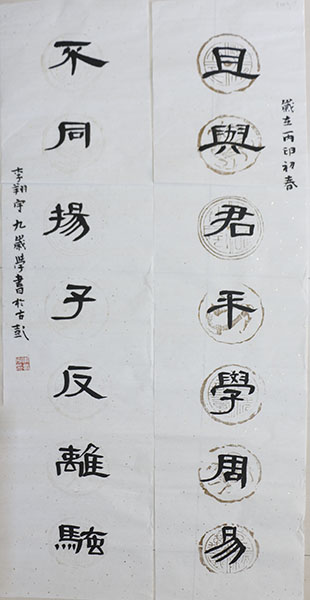 歲在丙初春
且與君平學周易
不同揚子反離騷
李翔宇九歲學書於古彭